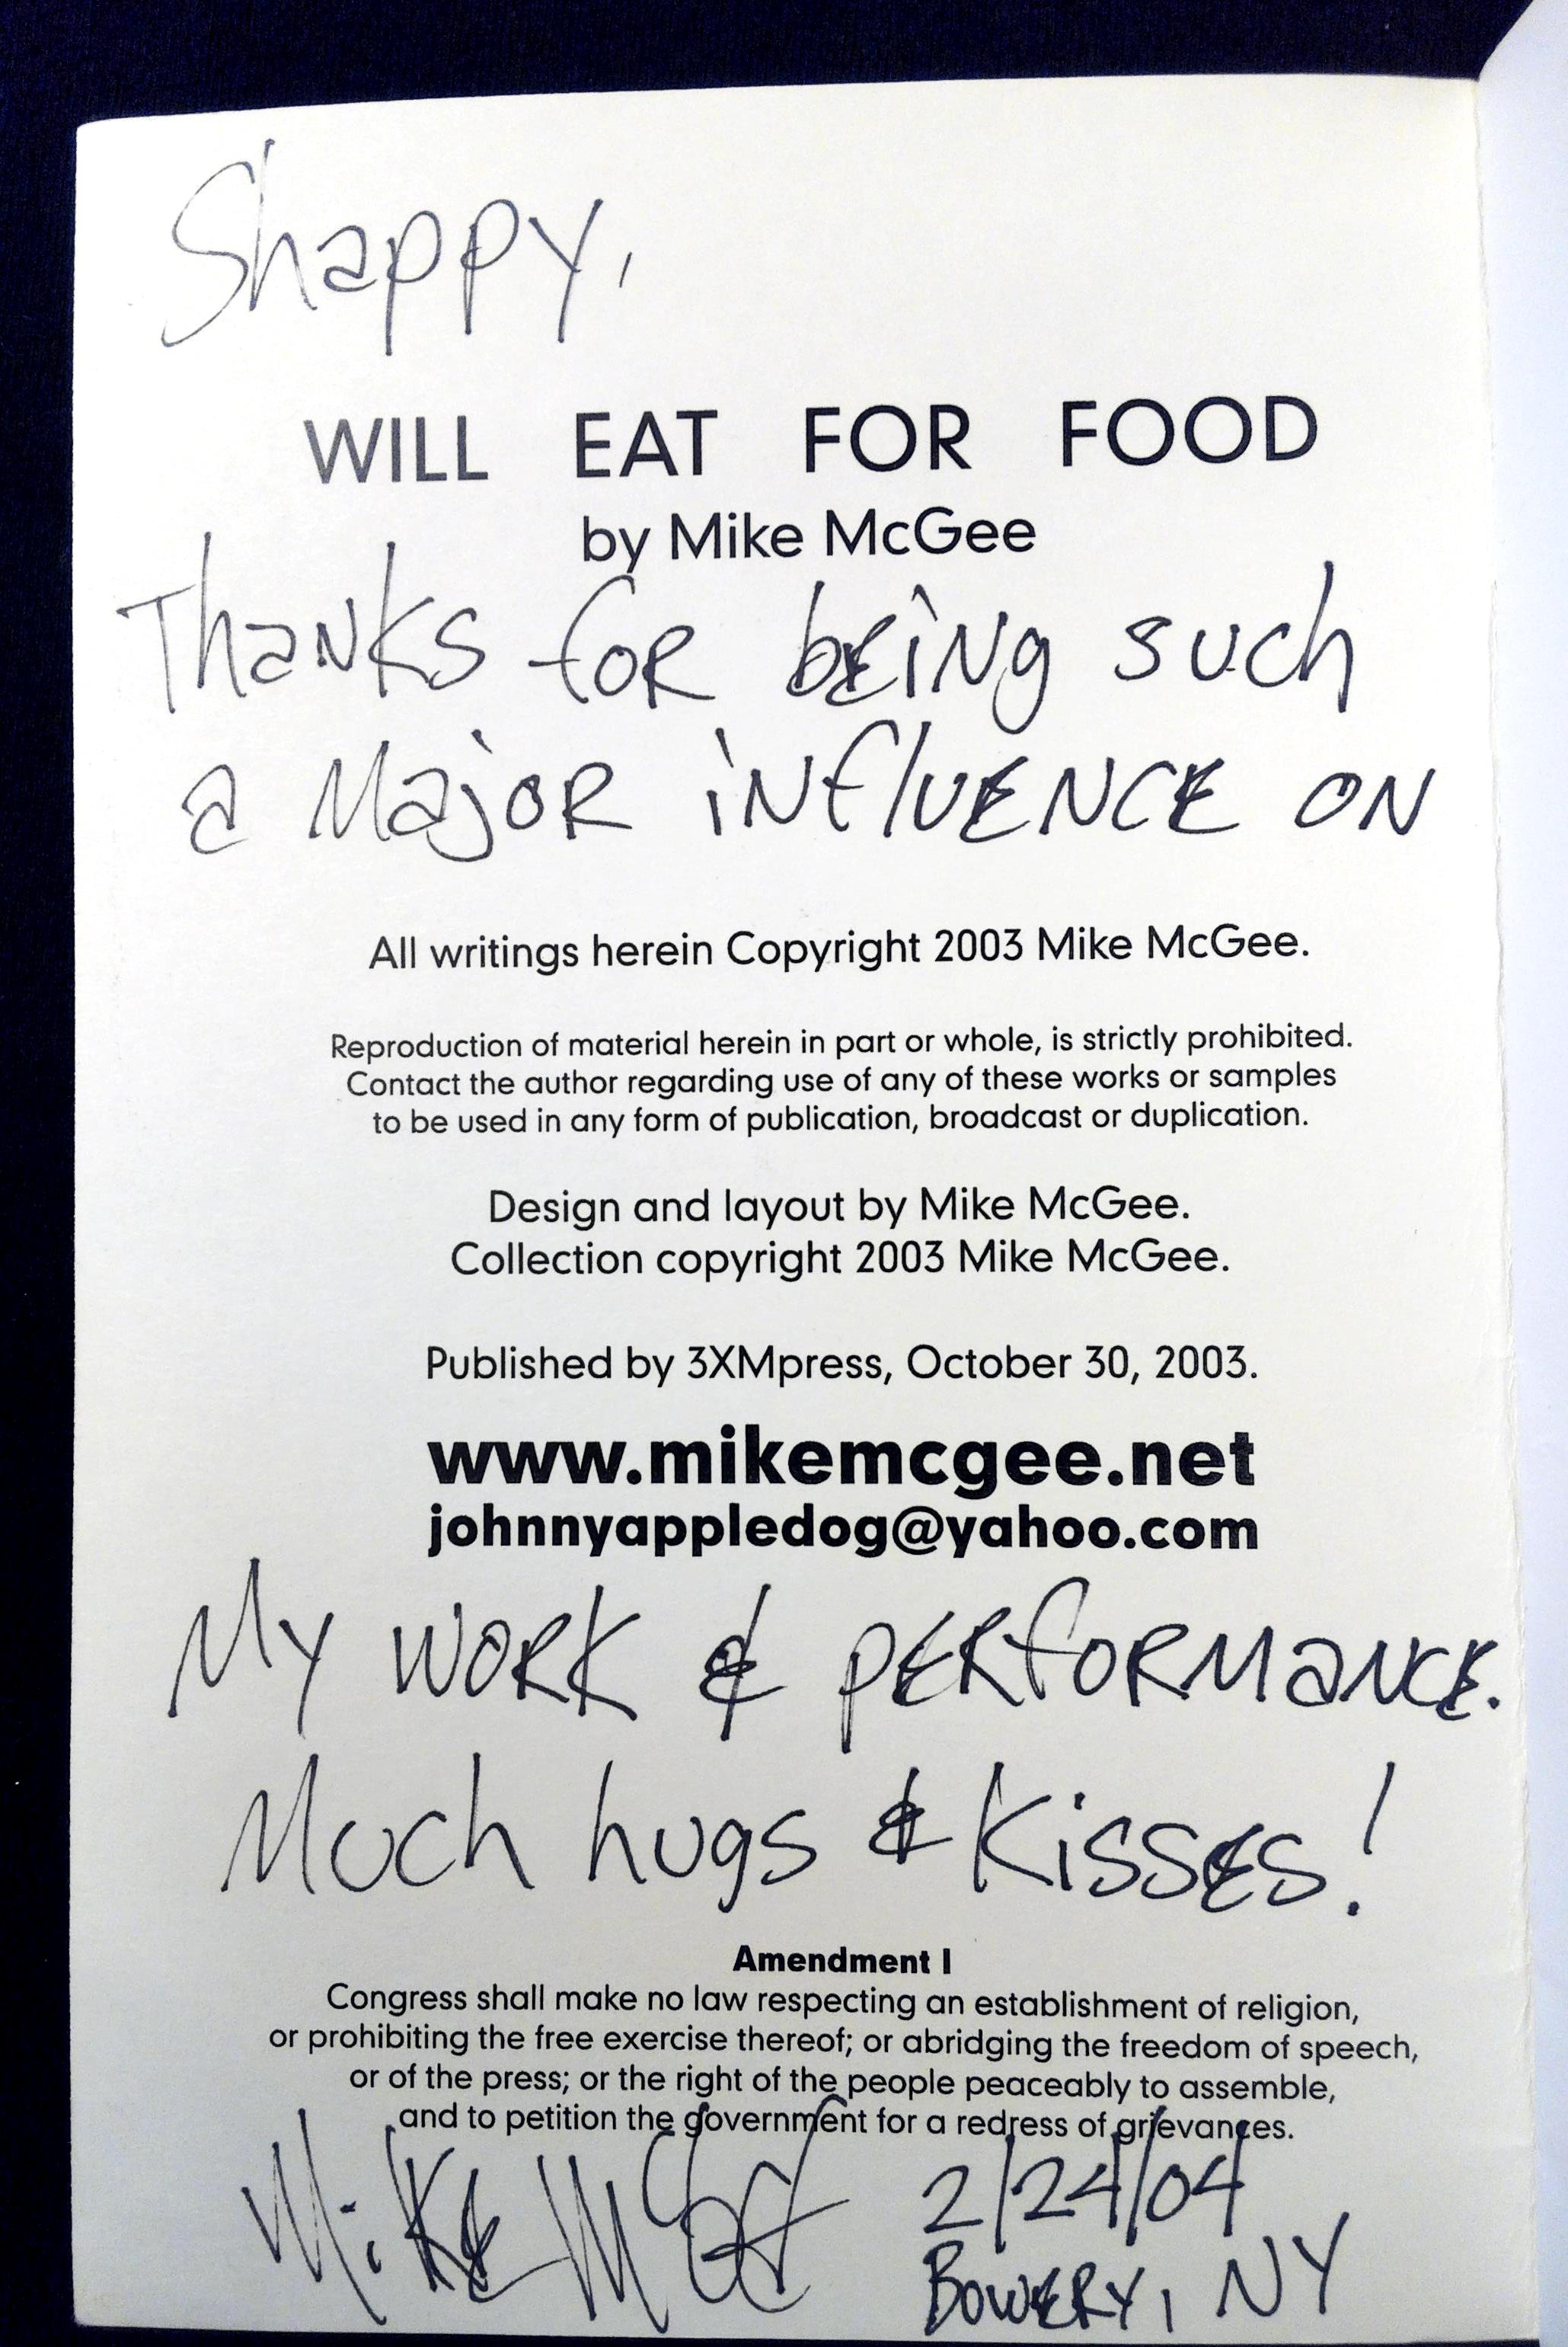 Shappy,
WILL EAT FOR FOOD
by Mike McGee
Thanks for being such
a Major influence on
All writings herein Copyright 2003 Mike McGee.
Reproduction of material herein in part or whole, is strictly prohibited.
Contact the author regarding use of any of these works or samples
to be used in any form of publication, broadcast or duplication.
Design and layout by Mike McGee.
Collection copyright 2003 Mike McGee.
Published by 3XMpress, October 30, 2003.
www.mikemcgee.net
johnnyappledog@yahoo.com
My work & performance.
Much hugs & Kisses!
Amendment I
Congress shall make no law respecting an establishment of religion,
or prohibiting the free exercise thereof; or abridging the freedom of speech,
or of the press; or the right of the people peaceably to assemble,
and to petition the government for a redress of grievances.
Mike McGee 2/24/04
Bowery, NY